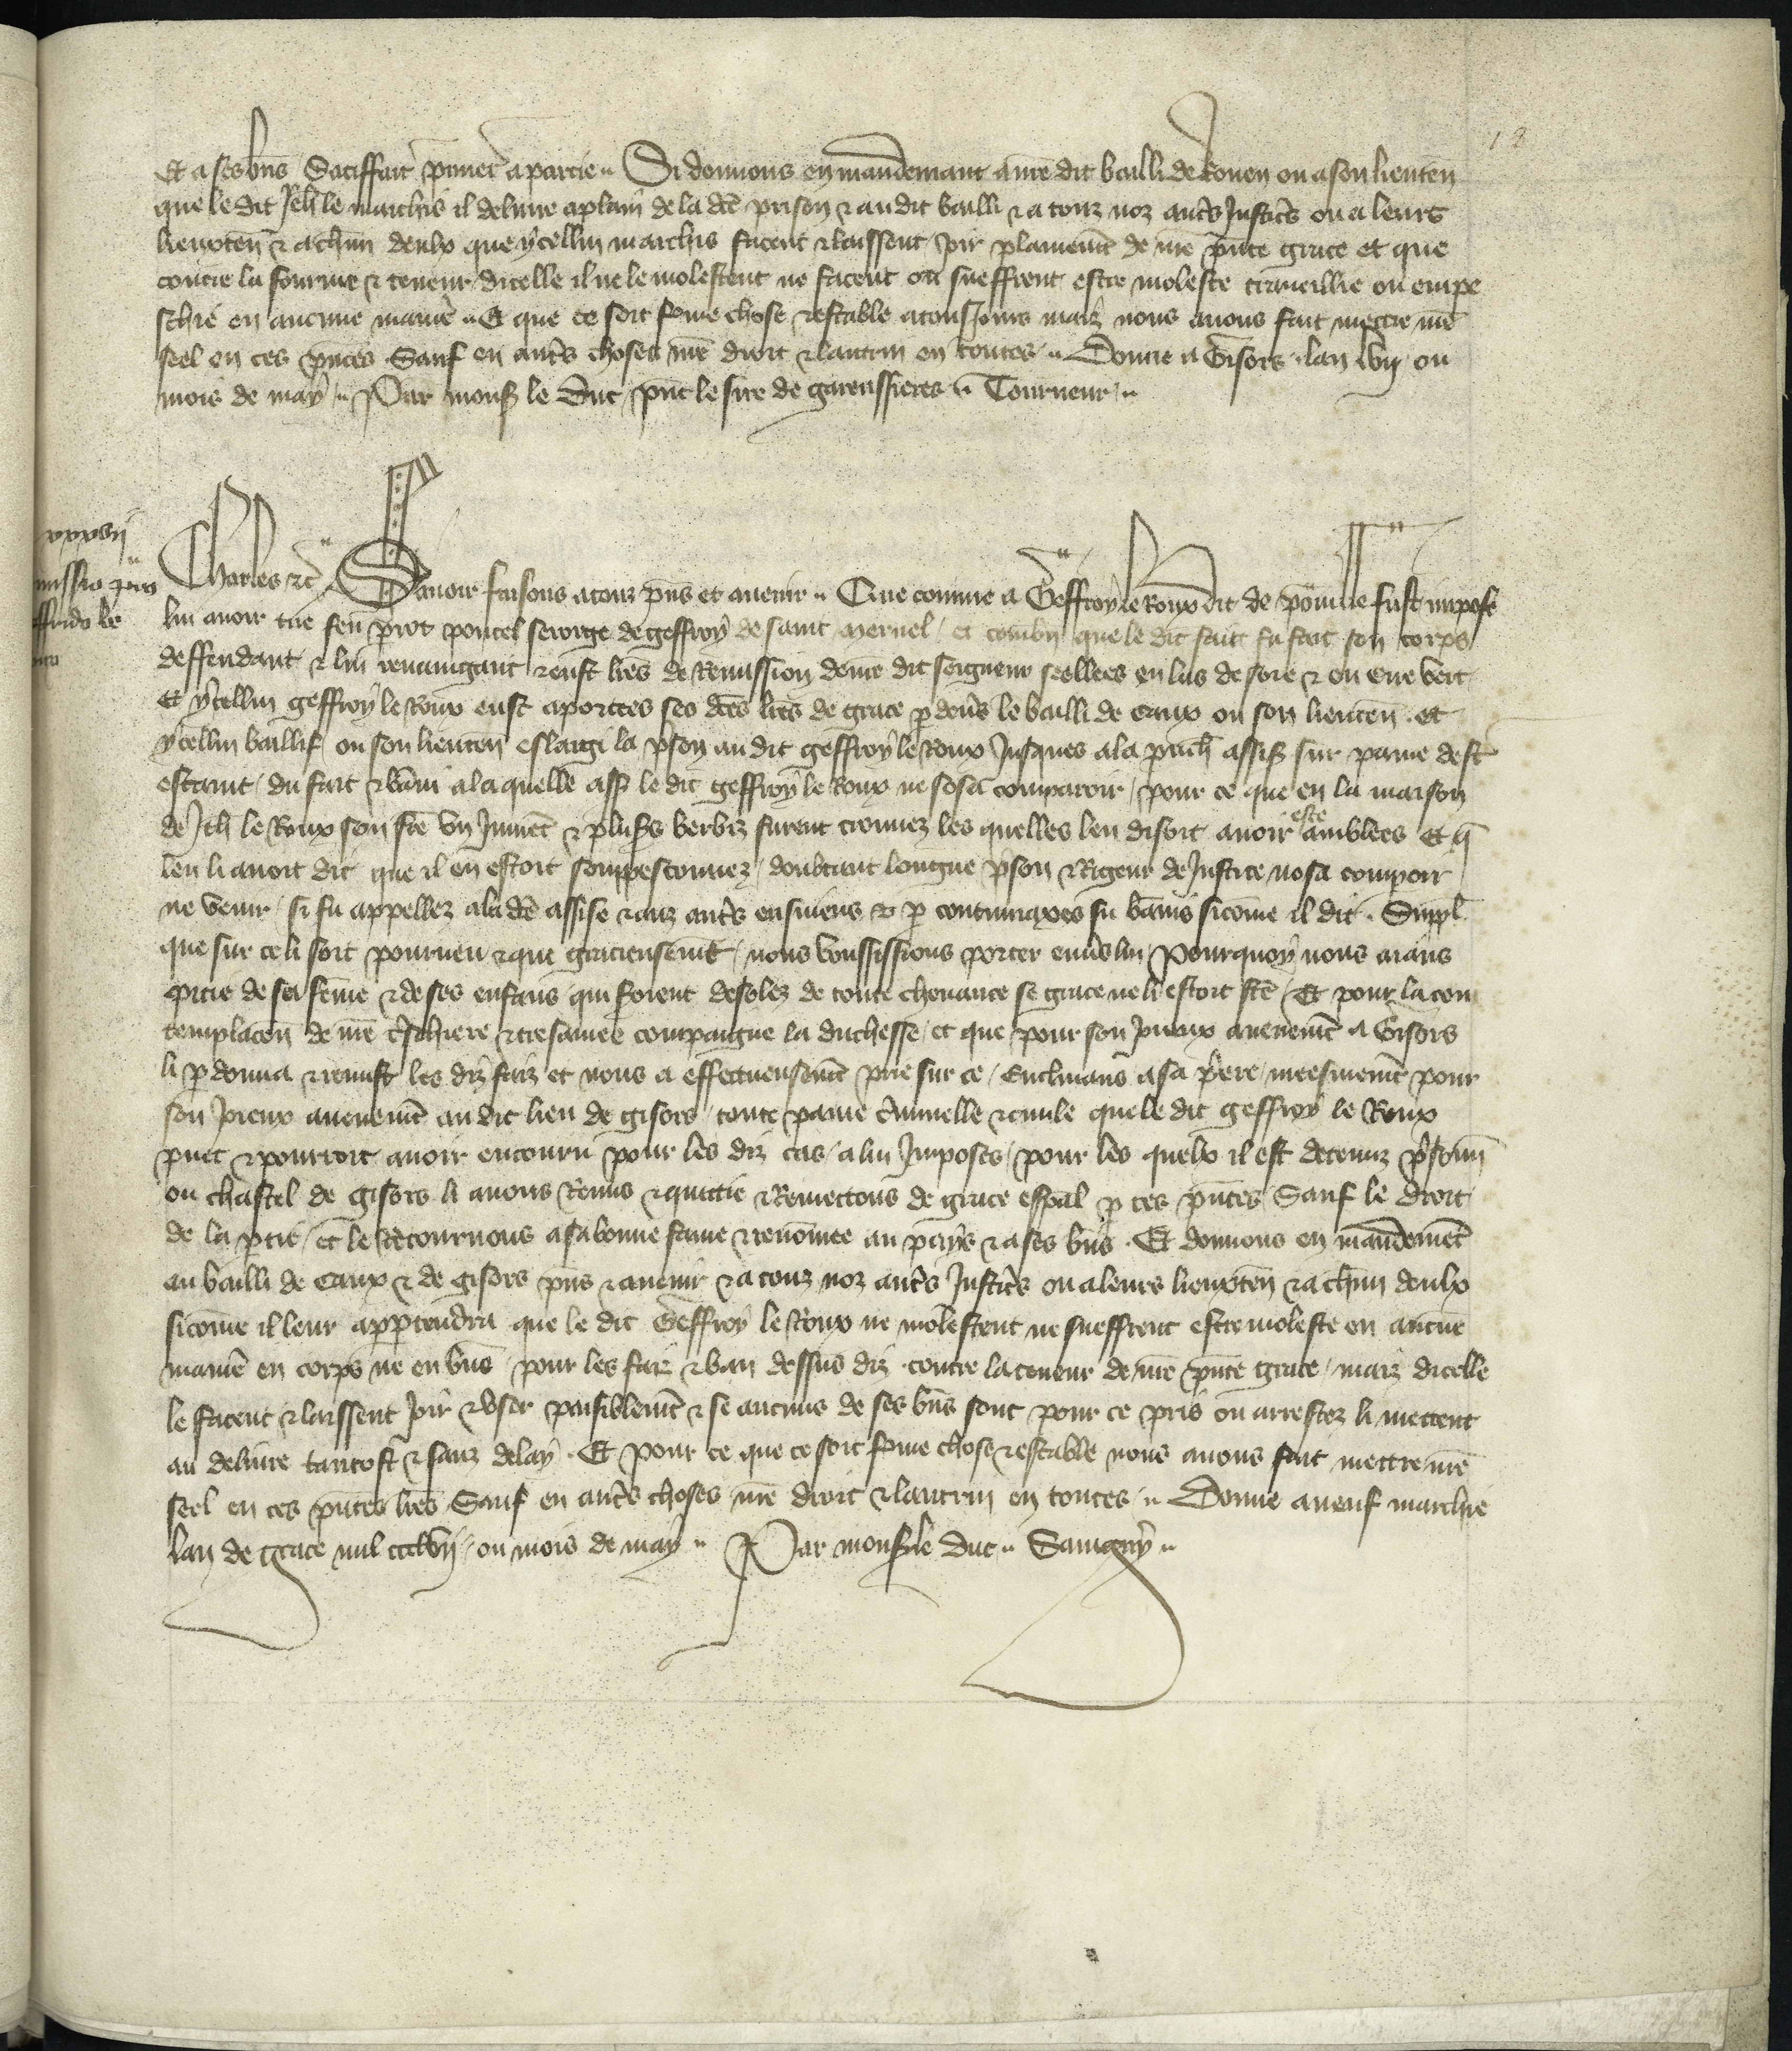 18
Et a ses bñs Satiffait p̃miet̃ a partie. Si donnons en mandemant a nr̃e dit bailli de Rouen ou a son lieuteñ
que le dit Jeh̃ le marchis il deliure a plain de la dc̃e prison & au dit bailli & a touz noz autr̃s Justic̃s ou a leurs
lieuxteñ & a chũn deulx que ycellui marchis facent & laissent joir plainemẽt de nr̃e pñte grace et que
contre la fourme & teneur dicelle il ne le molestent ne facent ou sueffrent estre moleste trauueillie ou empe
schie en aucune manie. Et que ce soit ferme chose & estable a tousiours maiz nous auons fait mettre nr̃e
seel en ces pñtes Sauf en autr̃s choses nr̃e droit & lautrui en toutes. Donne a Gisors lan lvij ou
mois de may. Par mons̃ le Duc pñt le sire de garenssieres. Tourneur.
xxxvij
missio
ffrido le
Charles &c̃ Sauoir faisons a touz pñs et auenir. Que comme a Geffroy le Roux dit de fust impose
lui auoir tue feu poncel serorge de geffroy de saint et combñ que le dit fait fu fait son corps
deffendant & lui reuainquant & eust lr̃es de Remission de nr̃e dit seigneur seellees en las de soie & en cire vert
Et ycellui geffroy le Roux eust aportees ses dc̃es lr̃es de grace p deũs le bailli de Caux ou son lieuteñ. et
ycellui baillif ou son lieuteñ eslargi la p̃son au dit geffroy le Roux Jusques a la p̃uch̃ assis̃ sur paine destr̃
estaint du fait & bãni a la quelle ass̃ le dit geffroy le Roux ne sosa comparoir pour ce que en la maison
de Jeh̃ le Roux son fr̃e vn Jumẽt & plus̃rs berbiz furent trouuez les quelles len disoit auoir este amblees Et q̃
len li auoit dit que il en estoit souppesconnez doubtant longue p̃son & Rigeur de Justice nosa compoir
ne venir si fu appellez a la dc̃e assise & aux autr̃s ensuiens & p contumaxes fu bãnis sicõme il dit. Suppl̃
que sur ce li soit pourueu & que gracieusemẽt nous voussissions porter enũs lui Pourquoy nous aiãns
pitie de sa fẽme & de ses enfans qui seroient desolez de toute cheuance se grace ne li estoit fc̃e Et pour la con
templacõn de nr̃e tr̃schiere & tresamee compaigne la duchesse et que pour son joieux auenemẽt a Gisors
li p donna & remist les diz faiz et nous a effectueusemẽt prie sur ce Enclinans a sa p̃ere meesmemẽt pour
son joieux auenemẽt au dit lieu de gisors toute paine cr̃iminelle & ciuile que le dit geffroy le Roux
puet & pourroit auoir encouru pour les diz cas a lui Imposes pour les quelx il est detenuz p̃sonñ
ou chastel de gisors li auons Remis & quittie & Remettons de grace esp̃al p ces pñtes Sauf le droit
de la ptie et le Retournons a sa bonne fame & renõmee au pays & a ses bñs. Et donnons en mandemẽt
au bailli de Caux & de gisors pñs & auenir & a touz noz autr̃s Justic̃s ou a leurs lieuxteñ & a chũn deulx
sicõme il leur appartendra que le dit Geffroy le Roux ne molestent ne sueffrent estre moleste en aucũe
manie en corps ne en bñs pour les faiz & ban dessus diz contre la teneur de nr̃e pñte grace maiz dicelle
le facent & laissent joir & vser paisiblemẽt & se aucuns de ses bñs sont pour ce pris ou arrestez li mettent
au deliure tantost & sanz delay. Et pour ce que ce soit ferme chose & estable nous auons fait mettre nr̃e
seel en ces pñtes lr̃es Sauf en autr̃s choses nr̃e droit & lautrui en toutes. Donne a neuf marchie
lan de grace mil ccclvij ou mois de may. Par mons̃ le duc. Sauigny.